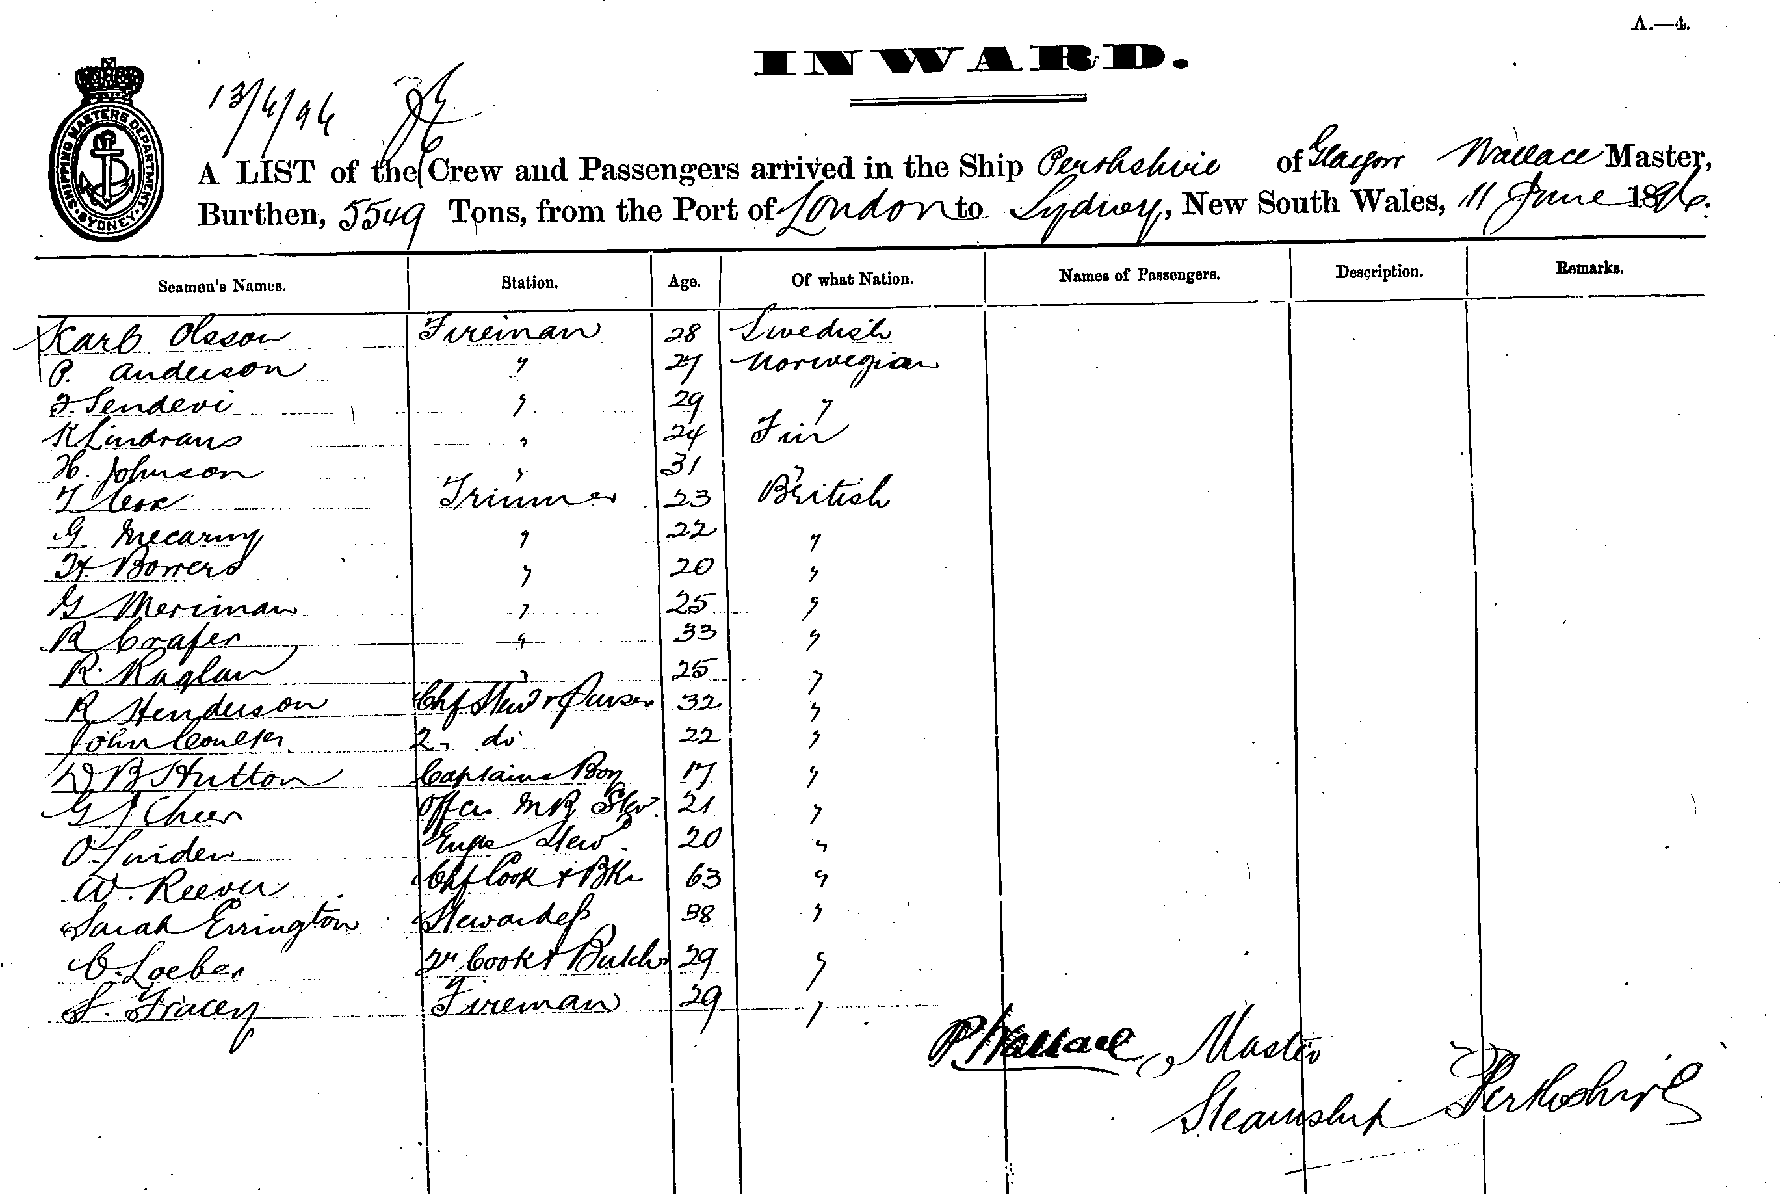 A.—4.
INWARD.
SHIPPING MASTERS DEPARTMENT. SYDNEY
13/6/96
A LIST of the Crew and Passengers arrived in the Ship Perthshire of Glasgow Wallace Master,
Burthen, 5549 Tons, from the Port of London to Sydney, New South Wales, 11 June 1896.
Seamen's Names. Station. Age. Of what Nation. Names of Passengers. Description. Remarks.
Karl Olsson Fireman 28 Swedish
P. Anderson " 27 Norwegian
F. Sendevi " 29 "
K Lindrans " 24 Fin
H. Johnson " 31 "
T Cox Trimmer 23 British
G. Mecarny " 22 "
H. Bowers " 20 "
G Meriman " 25 "
R Crafer " 33 "
R. Raglan " 25 "
R Henderson Chf Stewd & Purser 32 "
John Coulter 2. do 22 "
D B Hutton Captains Boy 17 "
G J Cheer Offcs M R Stew. 21 "
O. Linden Engs Stew 20 "
W. Reever Chf Cook & Bkr 63 "
Sarah Errington Stewardess 38 "
C. Loeber 2r Cook & Butch 29 "
S. Tracey Fireman 29 "
P Wallace, Master
Steamship Perthshire